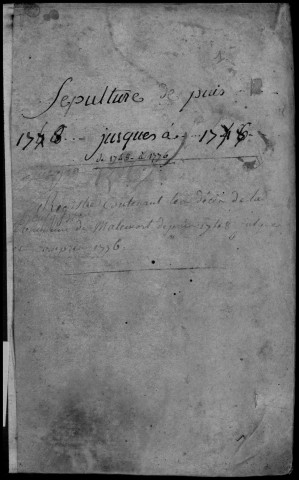 Sepultures de puis
1748 jusques à 1778
de 1748 à 1770
Registre Contenant les décès de la
de Malemort depuis 1748
1776